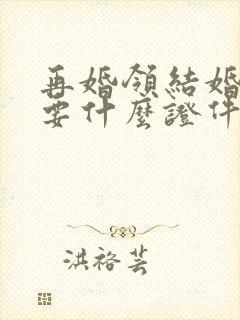 再婚領結婚
要什麼證件
洪裕芸